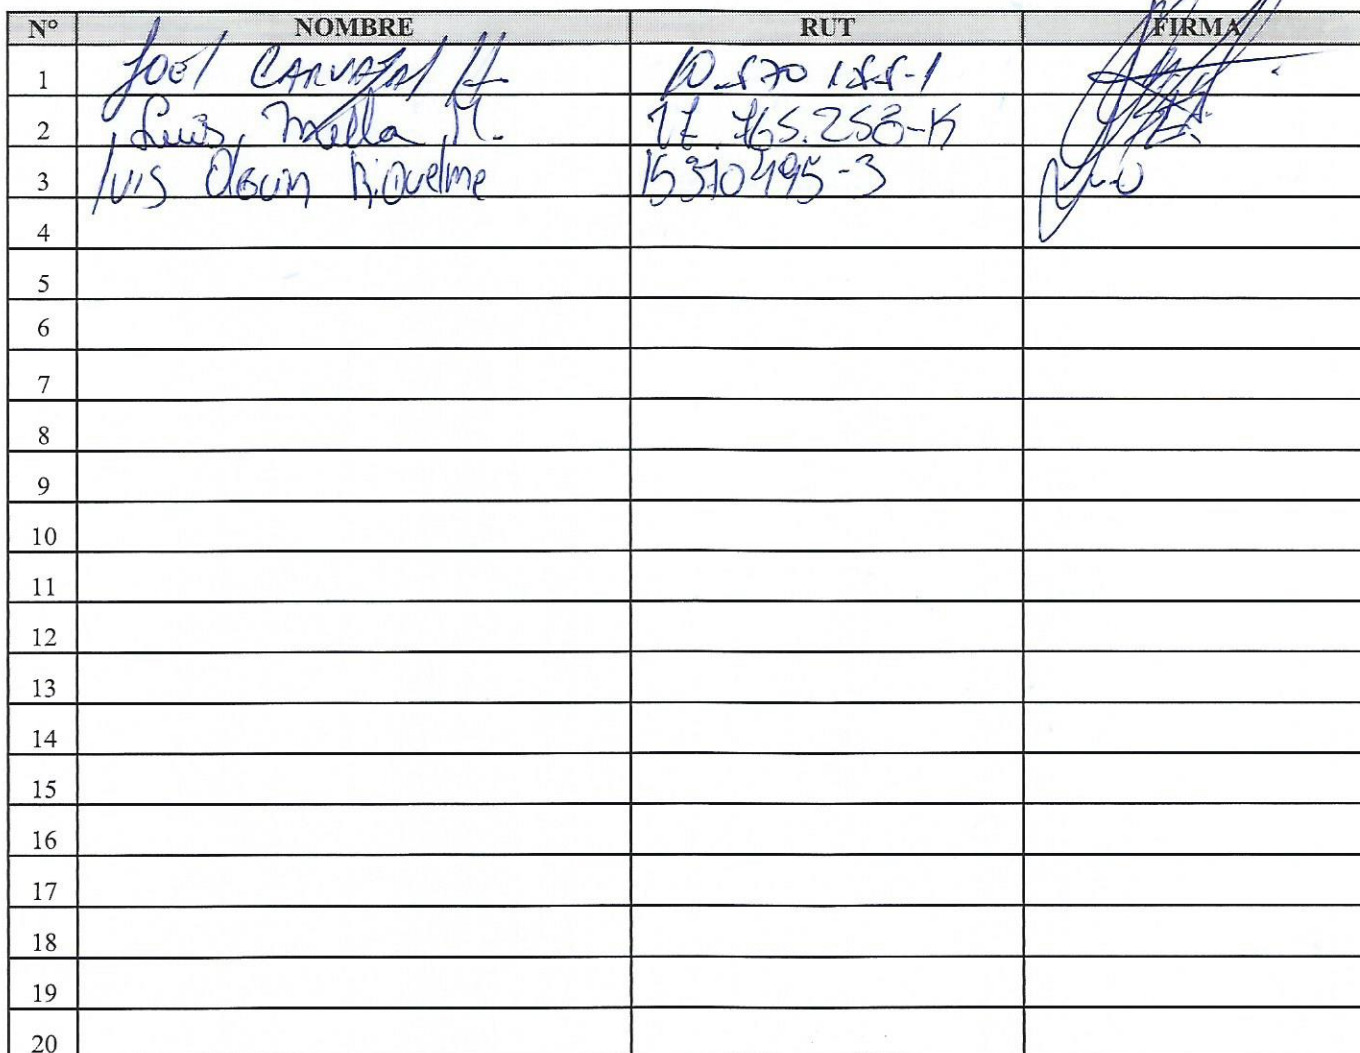 N° NOMBRE RUT FIRMA
1 Joel CARVAJAL H.
2 Luis Mella M. 17.765.253-K
3 luis Olguin Riquelme 15370495-3
4
5
6
7
8
9
10
11
12
13
14
15
16
17
18
19
20